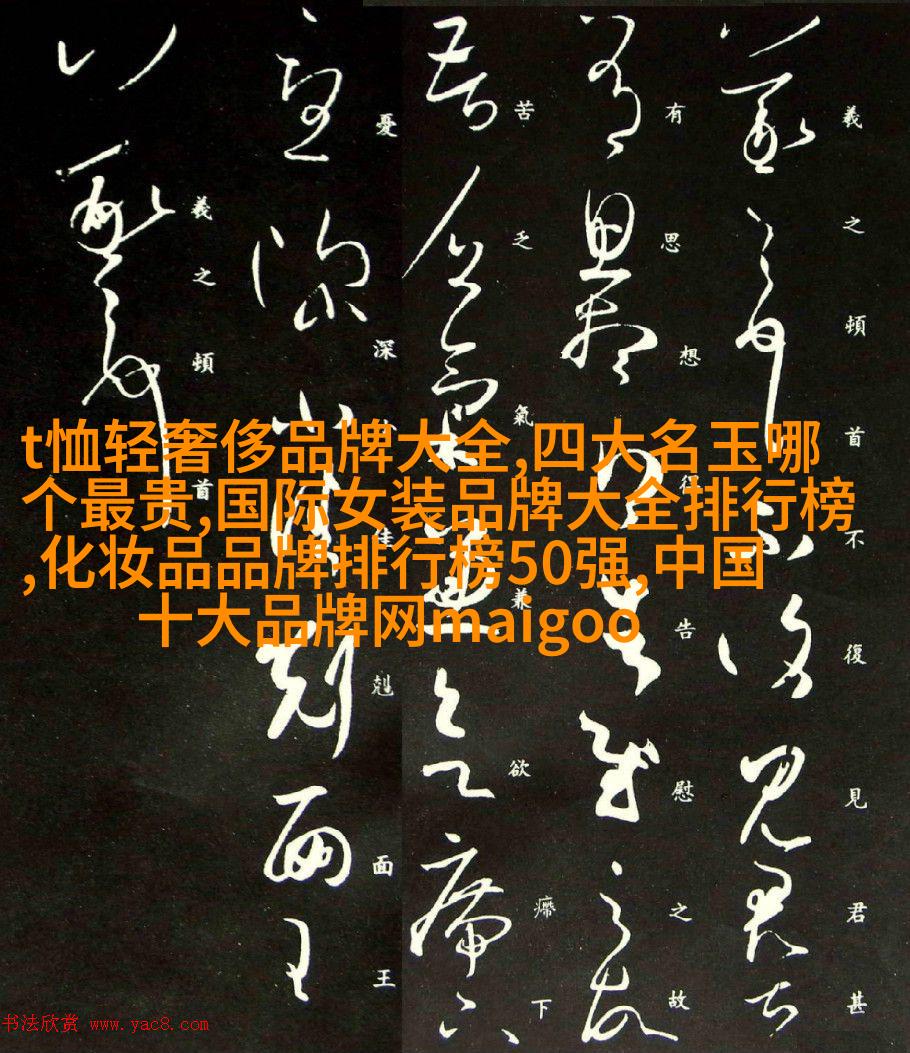 羲之頓首不復見君甚
有思想得告慰之故
苦乏氣兼欲㿃下
憂深小佳剋面王
羲之頓首
t恤轻奢侈品牌大全,四大名玉哪
个最贵,国际女装品牌大全排行榜
,化妆品品牌排行榜50强,中国
十大品牌网maigoo
书法欣赏 www.yac8.com